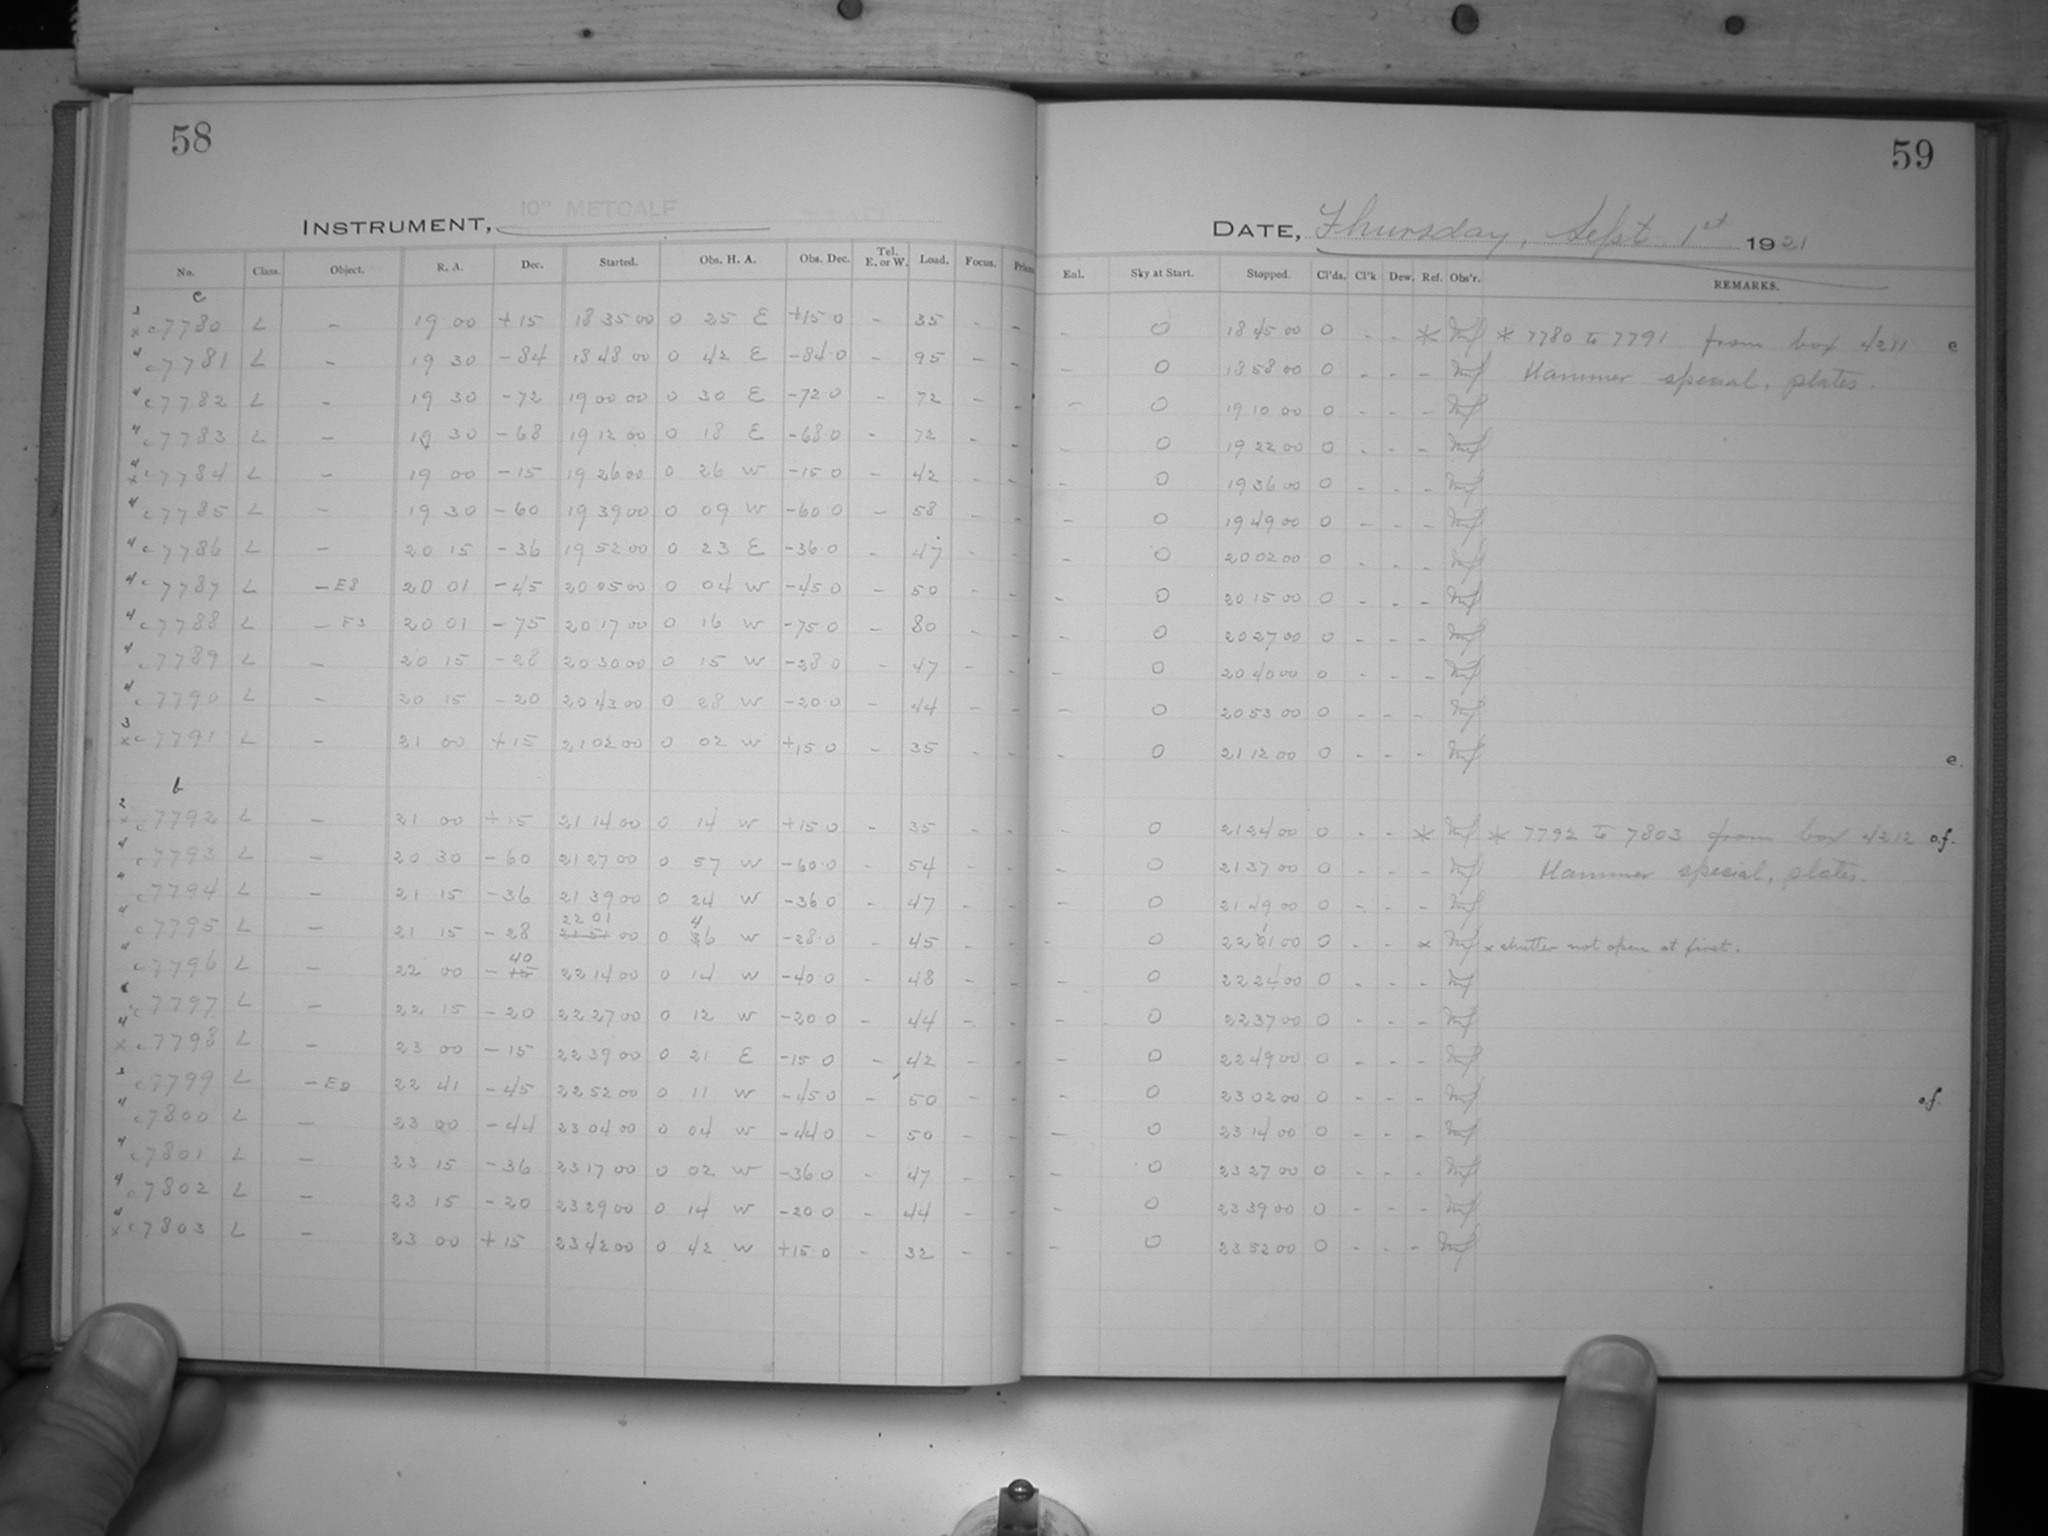 58
INSTRUMENT, 10" METCALF
No. Class. Object. R. A. Dec. Started. Obs. H. A. Obs. Dec. Tel. E. or W. Load. Focus.
c
3 x c7780 L - 19 00 +15 18 35 00 0 25 E +15 0 - 35 - -
4 c7781 L - 19 30 -84 18 48 00 0 42 E -84 0 - 95 - -
4 c7782 L - 19 30 -72 19 00 00 0 30 E -72 0 - 72 - -
4 c7783 L - 19 30 -68 19 12 00 0 18 E -68 0 - 72 - -
4 x c7784 L - 19 00 -15 19 26 00 0 26 W -15 0 - 42 - -
4 c7785 L - 19 30 -60 19 39 00 0 09 W -60 0 - 58 - -
4 c7786 L - 20 15 -36 19 52 00 0 23 E -36 0 - 47 - -
4 c7787 L - E8 20 01 -45 20 05 00 0 04 W -45 0 - 50 - -
4 c7788 L - F3 20 01 -75 20 17 00 0 16 W -75 0 - 80 - -
4 c7789 L - 20 15 -28 20 30 00 0 15 W -28 0 - 47 - -
4 c7790 L - 20 15 -20 20 43 00 0 28 W -20 0 - 44 - -
3 x c7791 L - 21 00 +15 21 02 00 0 02 W +15 0 - 35 - -
b
2 x c7792 L - 21 00 +15 21 14 00 0 14 W +15 0 - 35 - -
4 c7793 L - 20 30 -60 21 27 00 0 57 W -60 0 - 54 - -
4 c7794 L - 21 15 -36 21 39 00 0 24 W -36 0 - 47 - -
22 01 4
4 c7795 L - 21 15 -28 21 51 00 0 36 W -28 0 - 45 - -
40
4 c7796 L - 22 00 -15 22 14 00 0 14 W -40 0 - 48 - -
c7797 L - 22 15 -20 22 27 00 0 12 W -20 0 - 44 - -
4 x c7798 L - 23 00 -15 22 39 00 0 21 E -15 0 - 42 - -
3 c7799 L - E9 22 41 -45 22 52 00 0 11 W -45 0 - 50 - -
4 c7800 L - 23 00 -44 23 04 00 0 04 W -44 0 - 50 - -
4 c7801 L - 23 15 -36 23 17 00 0 02 W -36 0 - 47 - -
4 c7802 L - 23 15 -20 23 29 00 0 14 W -20 0 - 44 - -
4 x c7803 L - 23 00 +15 23 42 00 0 42 W +15 0 - 32 - -
59
DATE, Thursday, Sept 1st 1921
Enl. Sky at Start. Stopped. Cl'ds. Cl'k Dew. Ref. Obs'r. REMARKS.
- 0 18 45 00 0 - - * * 7780 to 7791 from box 4211 e
- 0 18 58 00 0 - - - Hammer special, plates.
- 0 19 10 00 0 - - -
- 0 19 22 00 0 - - -
- 0 19 36 00 0 - - -
- 0 19 49 00 0 - - -
- 0 20 02 00 0 - - -
- 0 20 15 00 0 - - -
- 0 20 27 00 0 - - -
- 0 20 40 00 0 - - -
- 0 20 53 00 0 - - -
- 0 21 12 00 0 - - - e.
- 0 21 24 00 0 - - * * 7792 to 7803 from box 4212 o.f.
- 0 21 37 00 0 - - - Hammer special, plates.
- 0 21 49 00 0 - - -
- 0 22 11 00 0 - - x x shutter not open at first.
- 0 22 24 00 0 - - -
- 0 22 37 00 0 - - -
- 0 22 49 00 0 - - -
- 0 23 02 00 0 - - - o.f.
- 0 23 14 00 0 - - -
- 0 23 27 00 0 - - -
- 0 23 39 00 0 - - -
- 0 23 52 00 0 - - -